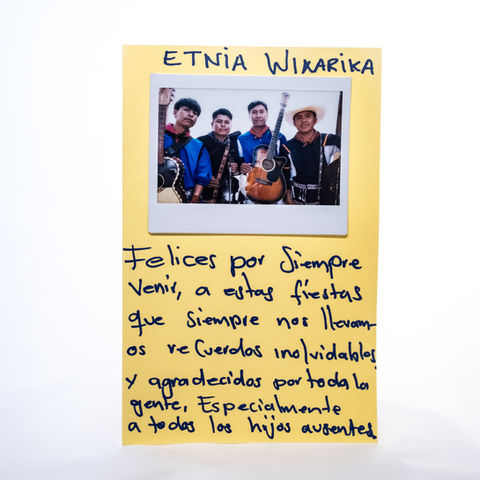 ETNIA WIXARIKA
Felices por Siempre
venir, a estas fiestas
que siempre nos llevam-
os recuerdos inolvidables,
y agradecidos por toda la
gente, Especialmente
a todos los hijos ausentes.